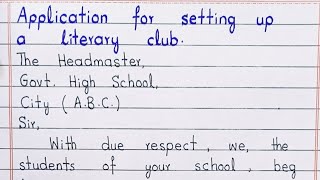 Application for setting up
a literary club.
The Headmaster,
Govt. High School,
City (A.B.C.)
Sir,
With due respect, we, the
students of your school, beg